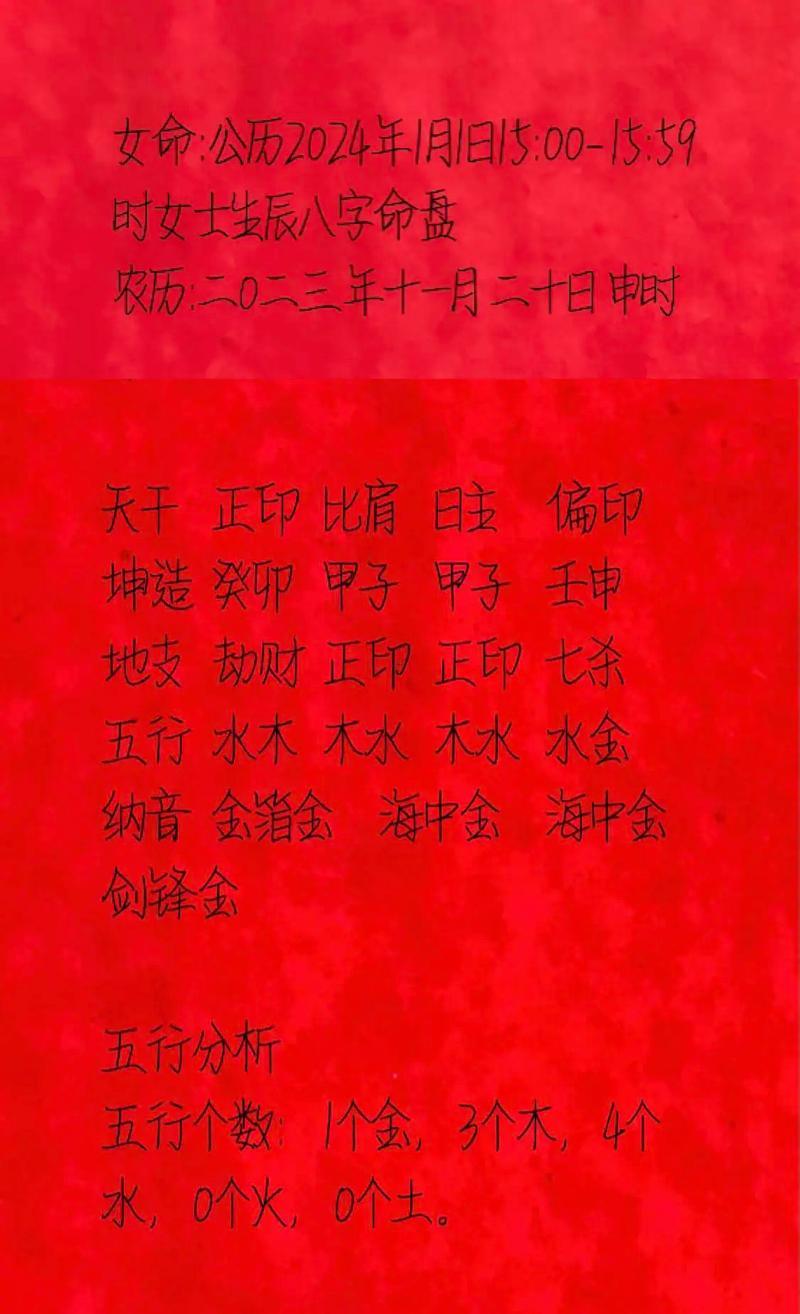 女命:公历2024年1月1日15:00-15:59
时女士生辰八字命盘
农历:二0二三年十一月二十日申时
天干 正印 比肩 日主 偏印
坤造 癸卯 甲子 甲子 壬申
地支 劫财 正印 正印 七杀
五行 水木 木水 木水 水金
纳音 金箔金 海中金 海中金
剑锋金
五行分析
五行个数: 1个金, 3个木, 4个
水, 0个火, 0个土。